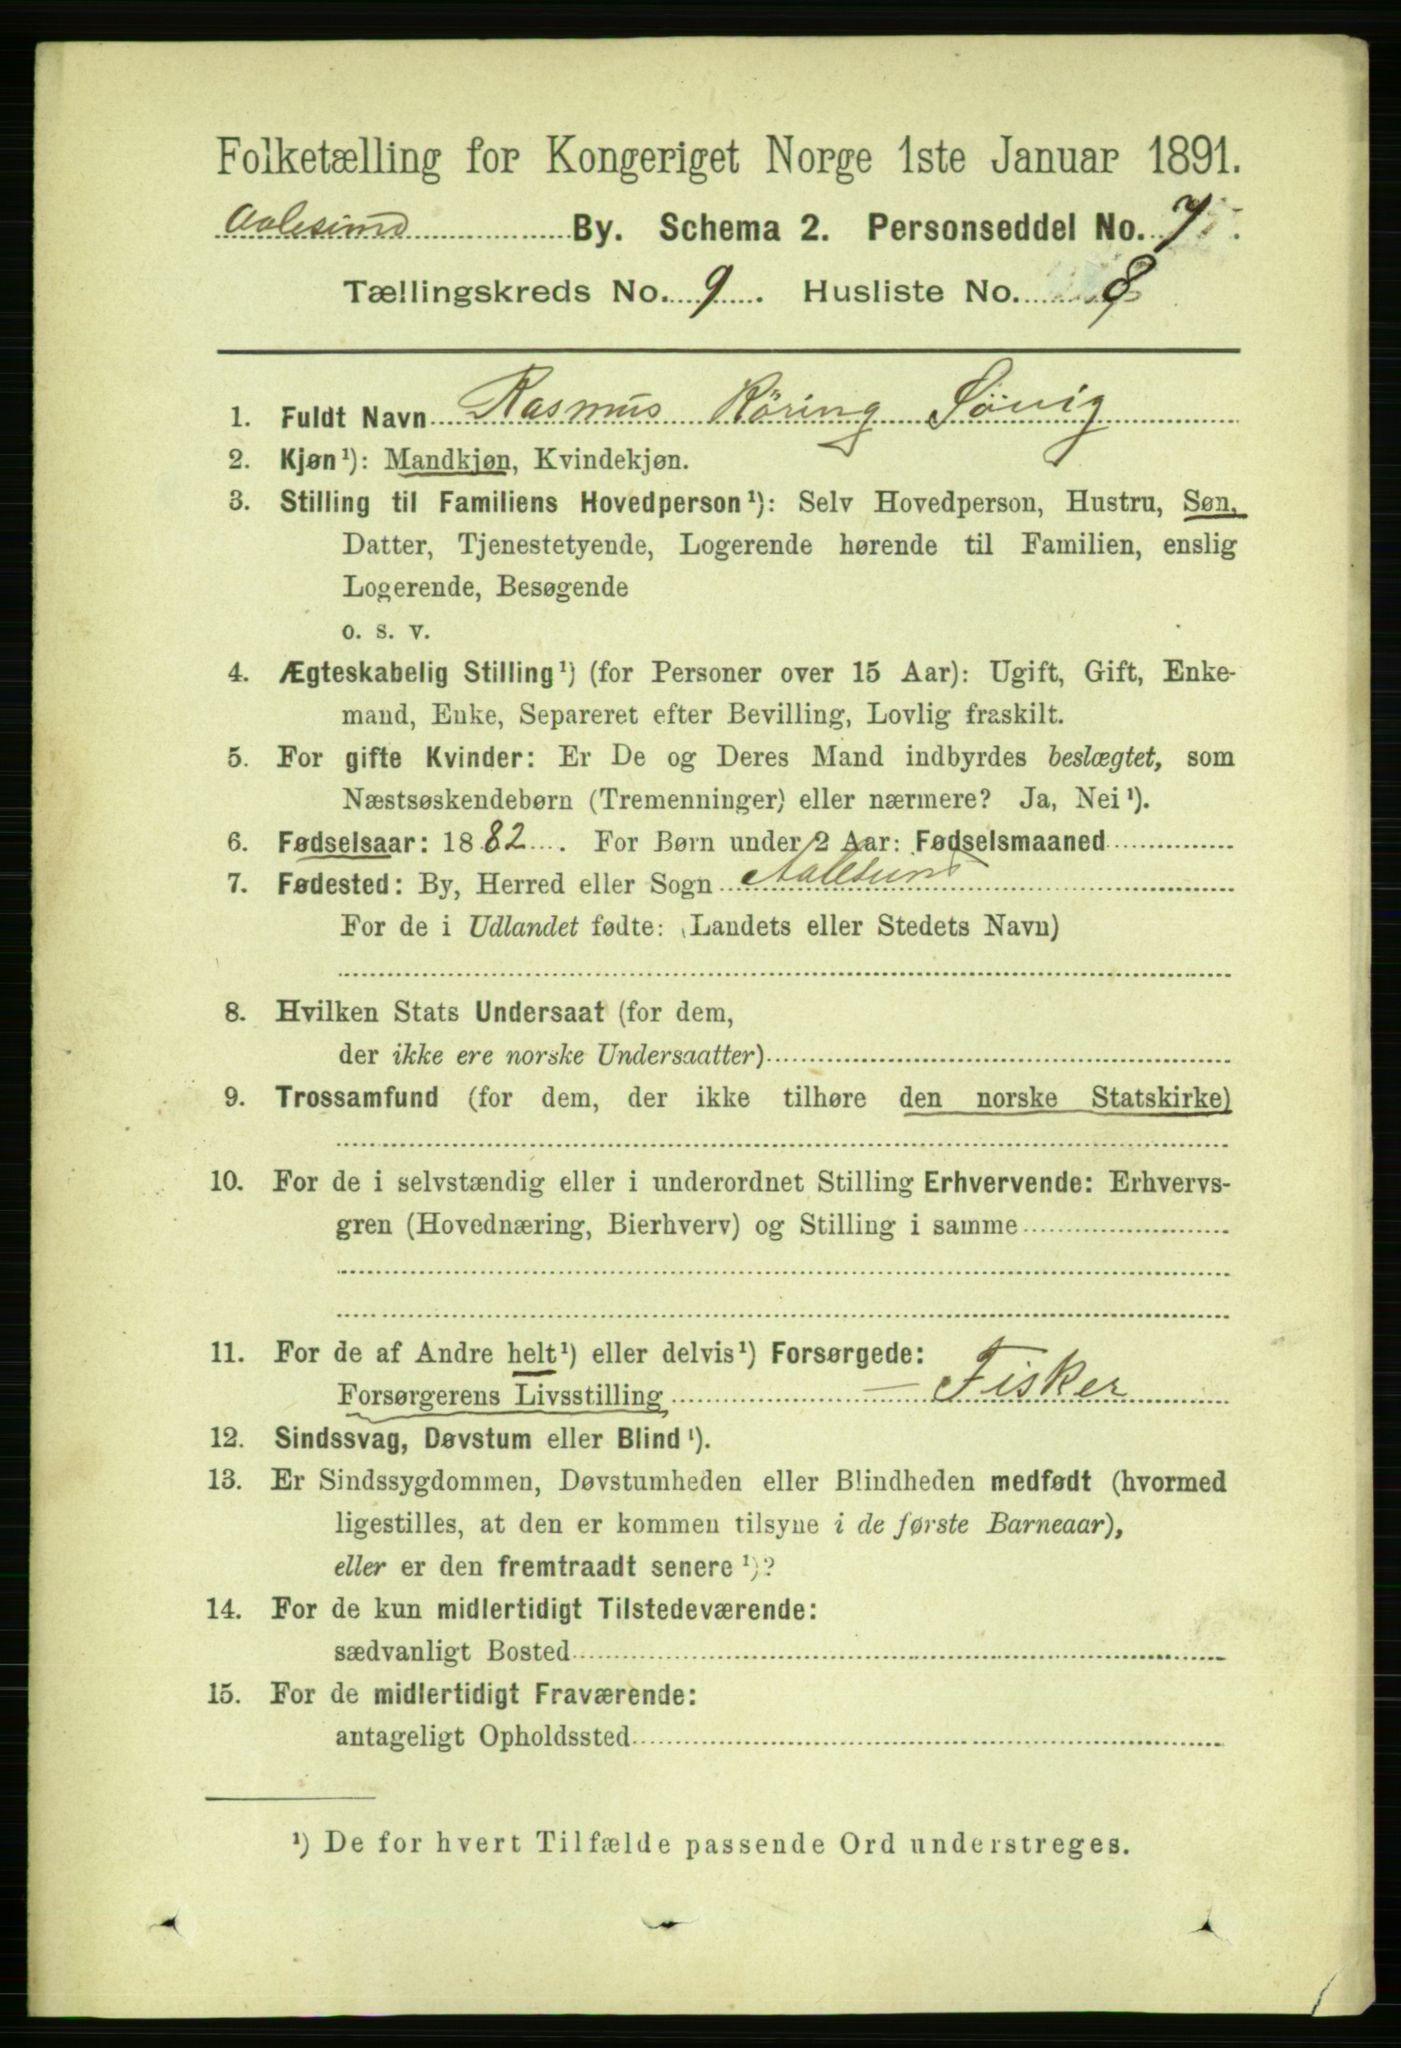 Folketælling for Kongeriget Norge 1ste Januar 1891.
Aalesund By. Schema 2. Personseddel No. 7.
Tællingskreds No. 9. Husliste No. 8
1. Fuldt Navn Rasmus Röring Søvig
2. Kjøn¹): Mandkjøn, Kvindekjøn.
3. Stilling til Familiens Hovedperson¹): Selv Hovedperson, Hustru, Søn,
Datter, Tjenestetyende, Logerende hørende til Familien, enslig
Logerende, Besøgende
o. s. v.
4. Ægteskabelig Stilling¹) (for Personer over 15 Aar): Ugift, Gift, Enke-
mand, Enke, Separeret efter Bevilling, Lovlig fraskilt.
5. For gifte Kvinder: Er De og Deres Mand indbyrdes beslægtet, som
Næstsøskendebørn (Tremenninger) eller nærmere? Ja, Nei¹).
6. Fødselsaar: 1882. For Børn under 2 Aar: Fødselsmaaned
7. Fødested: By, Herred eller Sogn Aalesund
For de i Udlandet fødte: (Landets eller Stedets Navn)
8. Hvilken Stats Undersaat (for dem,
der ikke ere norske Undersaatter)
9. Trossamfund (for dem, der ikke tilhøre den norske Statskirke)
10. For de i selvstændig eller i underordnet Stilling Erhvervende: Erhvervs-
gren (Hovednæring, Bierhverv) og Stilling i samme
11. For de af Andre helt¹) eller delvis¹) Forsørgede:
Forsørgerens Livsstilling — Fisker
12. Sindssvag, Døvstum eller Blind¹).
13. Er Sindssygdommen, Døvstumheden eller Blindheden medfødt (hvormed
ligestilles, at den er kommen tilsyne i de første Barneaar),
eller er den fremtraadt senere¹)?
14. For de kun midlertidigt Tilstedeværende:
sædvanligt Bosted
15. For de midlertidigt Fraværende:
antageligt Opholdssted
¹) De for hvert Tilfælde passende Ord understreges.